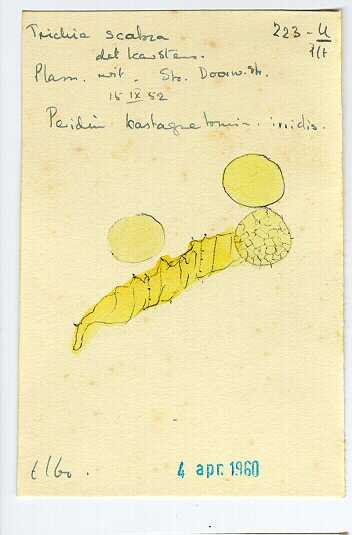 Trichia scabra 223-U
det Karsten.
Plasm. wit. Str. Doorw. str.
15 IX 52
Peridiu kastagnetomin. iridis.
t/60.
4 apr. 1960